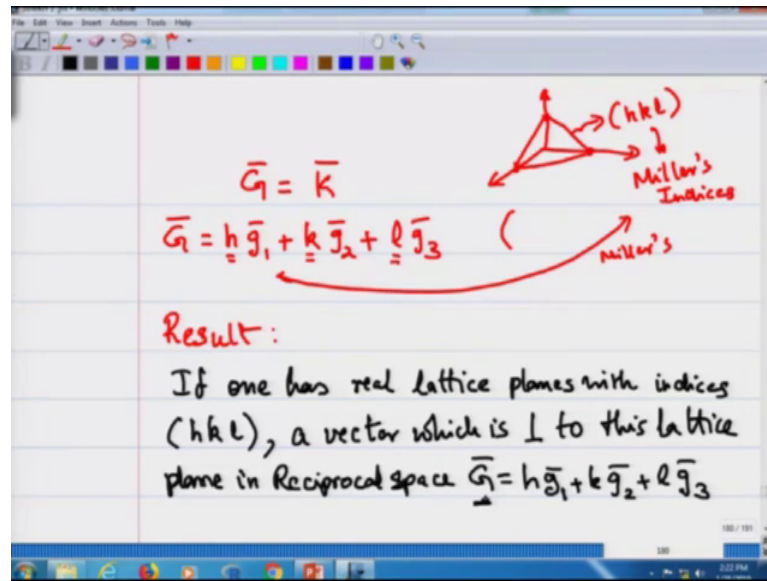 File Edit View Insert Actions Tools Help
B I
(hkl)
Miller's
Indices
Ḡ = K̄
Ḡ = h ḡ₁ + k ḡ₂ + l ḡ₃ (
Miller's
Result:
If one has real lattice planes with indices
(hkl), a vector which is ⊥ to this lattice
plane in Reciprocal space Ḡ = hḡ₁ + kḡ₂ + lḡ₃
180 / 191
180
2:22 PM